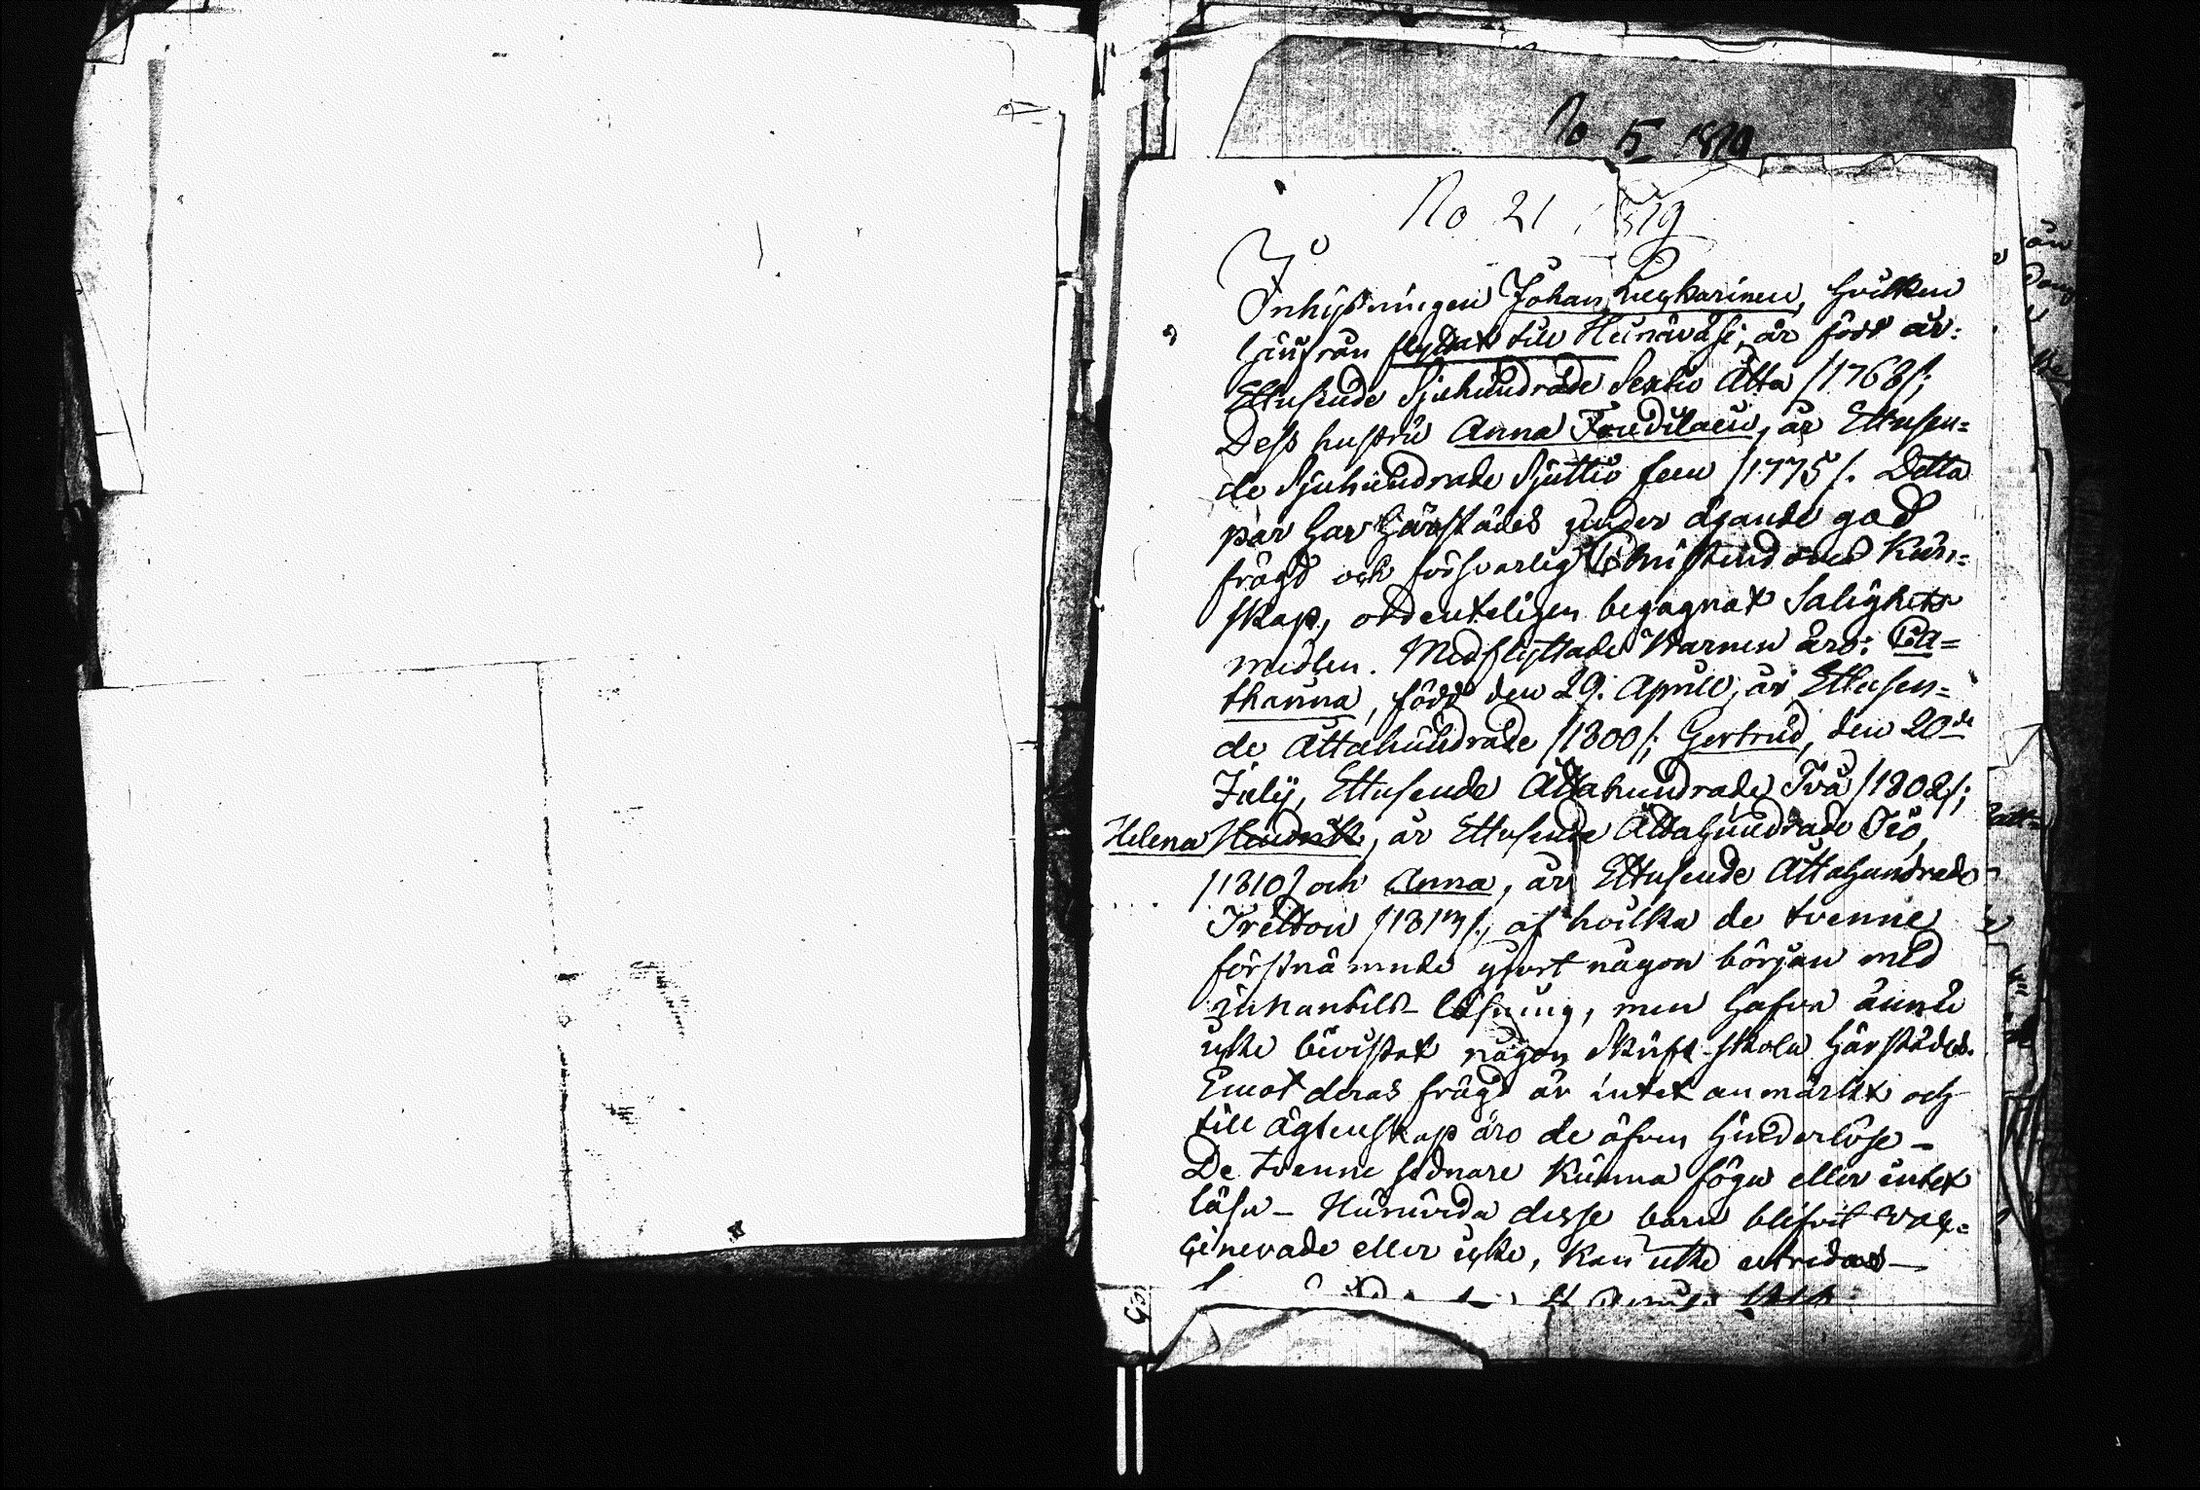 No 5 1819
No 21 1819
Inhysningen Johan Lieskarinen, hvilken
häifrån flyttat till Heinäväsi, är född år:
Ettusende Sjuhundrade Sextio Åtta /1768/;
Dess hustru Anna Toudilain, år Ettusen-
de Sjuhundrade Sjuttio fem /1775/. Detta
par har härstädes under ägande god
frägd och försvarlig Christendoms Kun-
skap, ordenteligen begagnat Salighets
medlen. Medflyttade Barnen äro: Ca-
tharina, född den 29. Aprill, år Ettusen-
de Åttahundrade /1800/; Gertrud, den 20de
Julij, Ettusende Åttahundrade Två /1802/;
Helena Hendrik, år Ettusende Åttahundrade Tio,
/1810/ och Anna, år Ettusende Åttahundrade
Tretton /1813/, af hvilka de tvenne
förstnämnde gjort någon början med
innantils läsning, men hafva ännu
icke bevistat någon Skrift-skola härstädes.
Emot deras frägd är intet anmärkt och
till ägtenskap äro de äfven hinderlöse –
De tvenne sednare kunna föga eller intet
läsa – Huruvida desse barn blifvit vac-
cinerade eller icke, kan icke utredas –